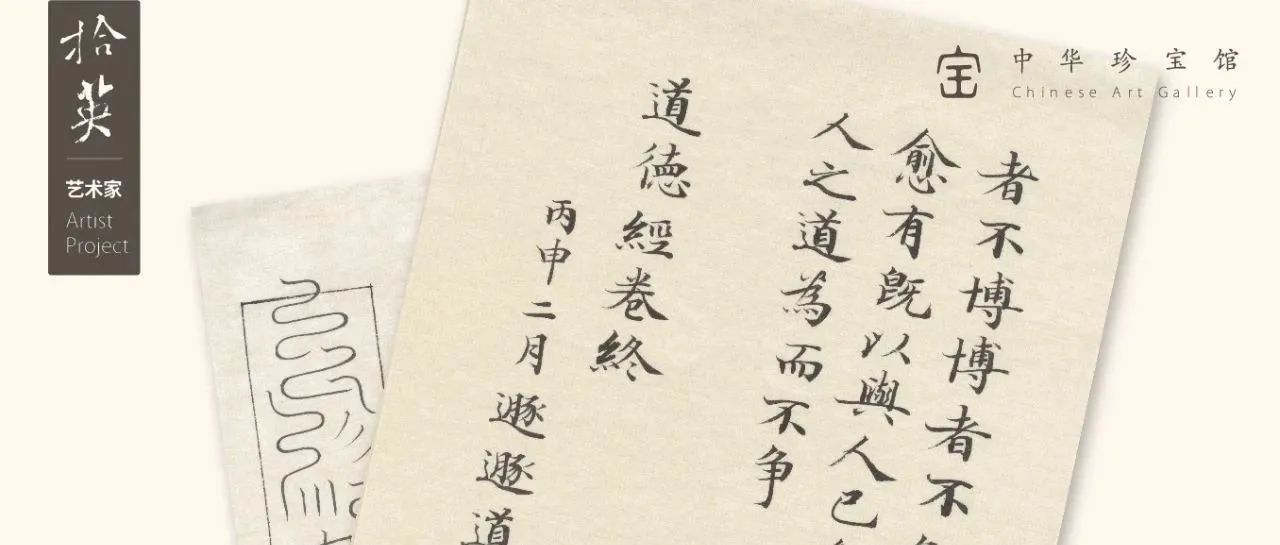 拾英
艺术家
Artist
Project
中华珍宝馆
Chinese Art Gallery
者不博博者不
愈有既以與人已
人之道為而不争
道德經卷終
丙申二月
遯遯道